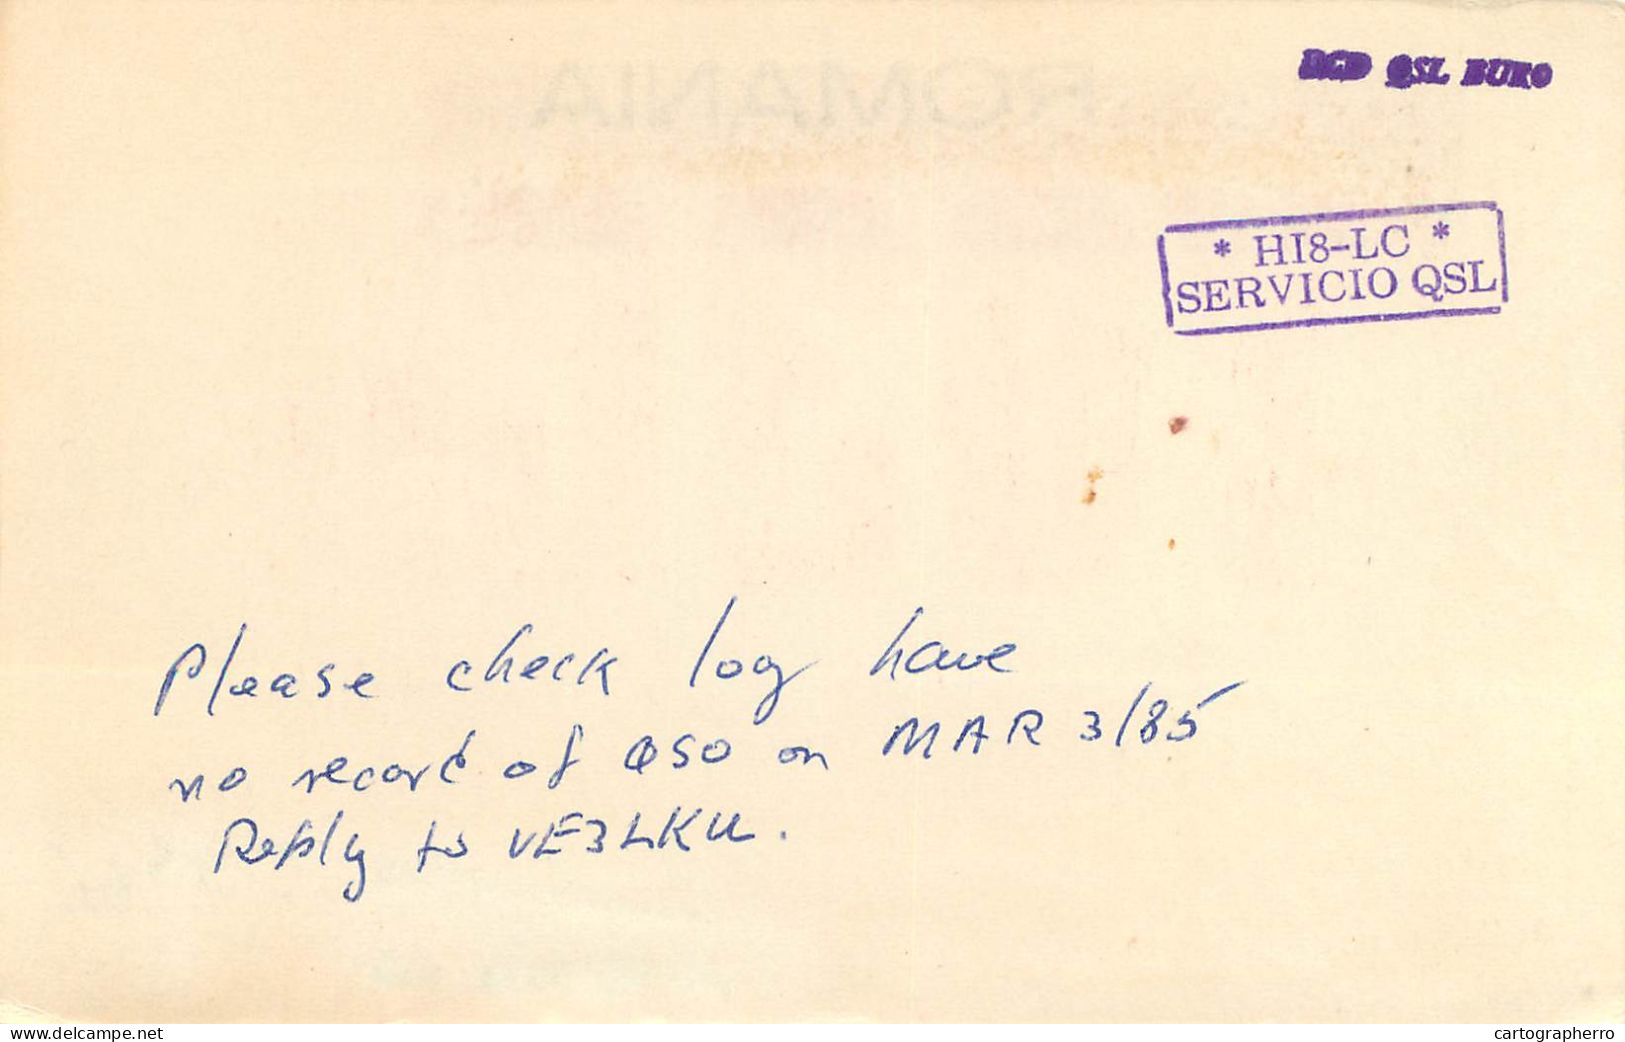 ROMANIA
RCD QSL BURO
* HI8-LC *
SERVICIO QSL
Please check log have
no record of QSO on MAR 3/85
Reply to VE3LKU.
delcampe.net
cartographerro